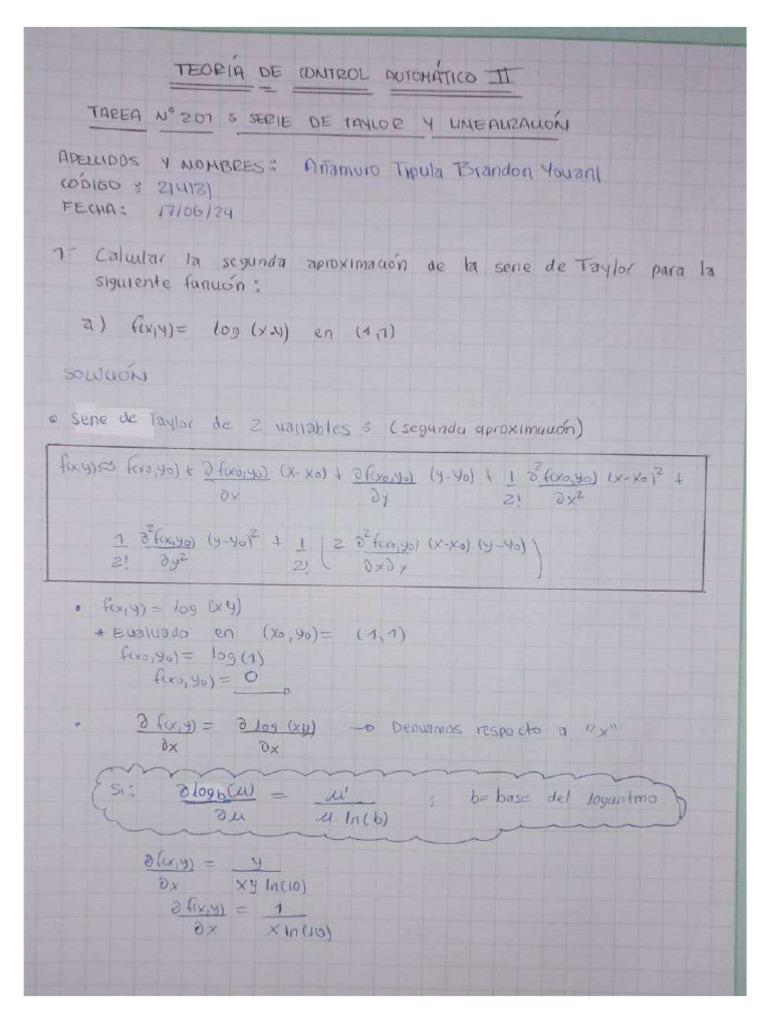 TEORÍA DE CONTROL AUTOMÁTICO II
TAREA N° 201 : SERIE DE TAYLOR Y LINEALIZACIÓN
APELLIDOS Y NOMBRES: Añamuro Tipula Brandon Yovani
CÓDIGO : 214131
FECHA: 17/06/24
1- Calcular la segunda aproximación de la serie de Taylor para la
siguiente función:
a) f(x,y)= log (x.y) en (1,1)
SOLUCIÓN
• Serie de Taylor de 2 variables : (segunda aproximación)
f(x,y)≈ f(x0,y0) + ∂f(x0,y0)/∂x (x-x0) + ∂f(x0,y0)/∂y (y-y0) + 1/2! ∂²f(x0,y0)/∂x² (x-x0)² +
1/2! ∂²f(x0,y0)/∂y² (y-y0)² + 1/2! (2 ∂²f(x0,y0)/∂x∂y (x-x0) (y-y0))
• f(x,y) = log (xy)
* Evaluado en (x0,y0)= (1,1)
f(x0,y0)= log(1)
f(x0,y0)= 0
• ∂f(x,y)/∂x = ∂ log (xy)/∂x → Derivamos respecto a "x"
Si: ∂logb(u)/∂u = u'/u.ln(b) ; b= base del logaritmo
∂f(x,y)/∂x = y/xy ln(10)
∂f(x,y)/∂x = 1/x ln(10)